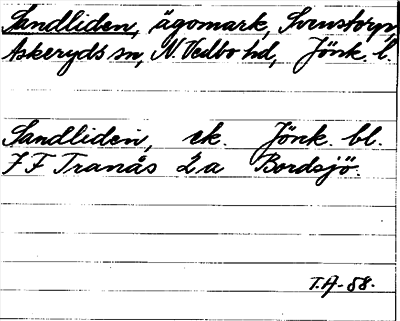 Sandliden, ägomark, Svenstorp,
Askeryds sn, N. Vedbo hd, Jönk. l.
Sandliden, ek. Jönk. bl.
7 F Tranås 2 a Bordsjö.
T.A-88.